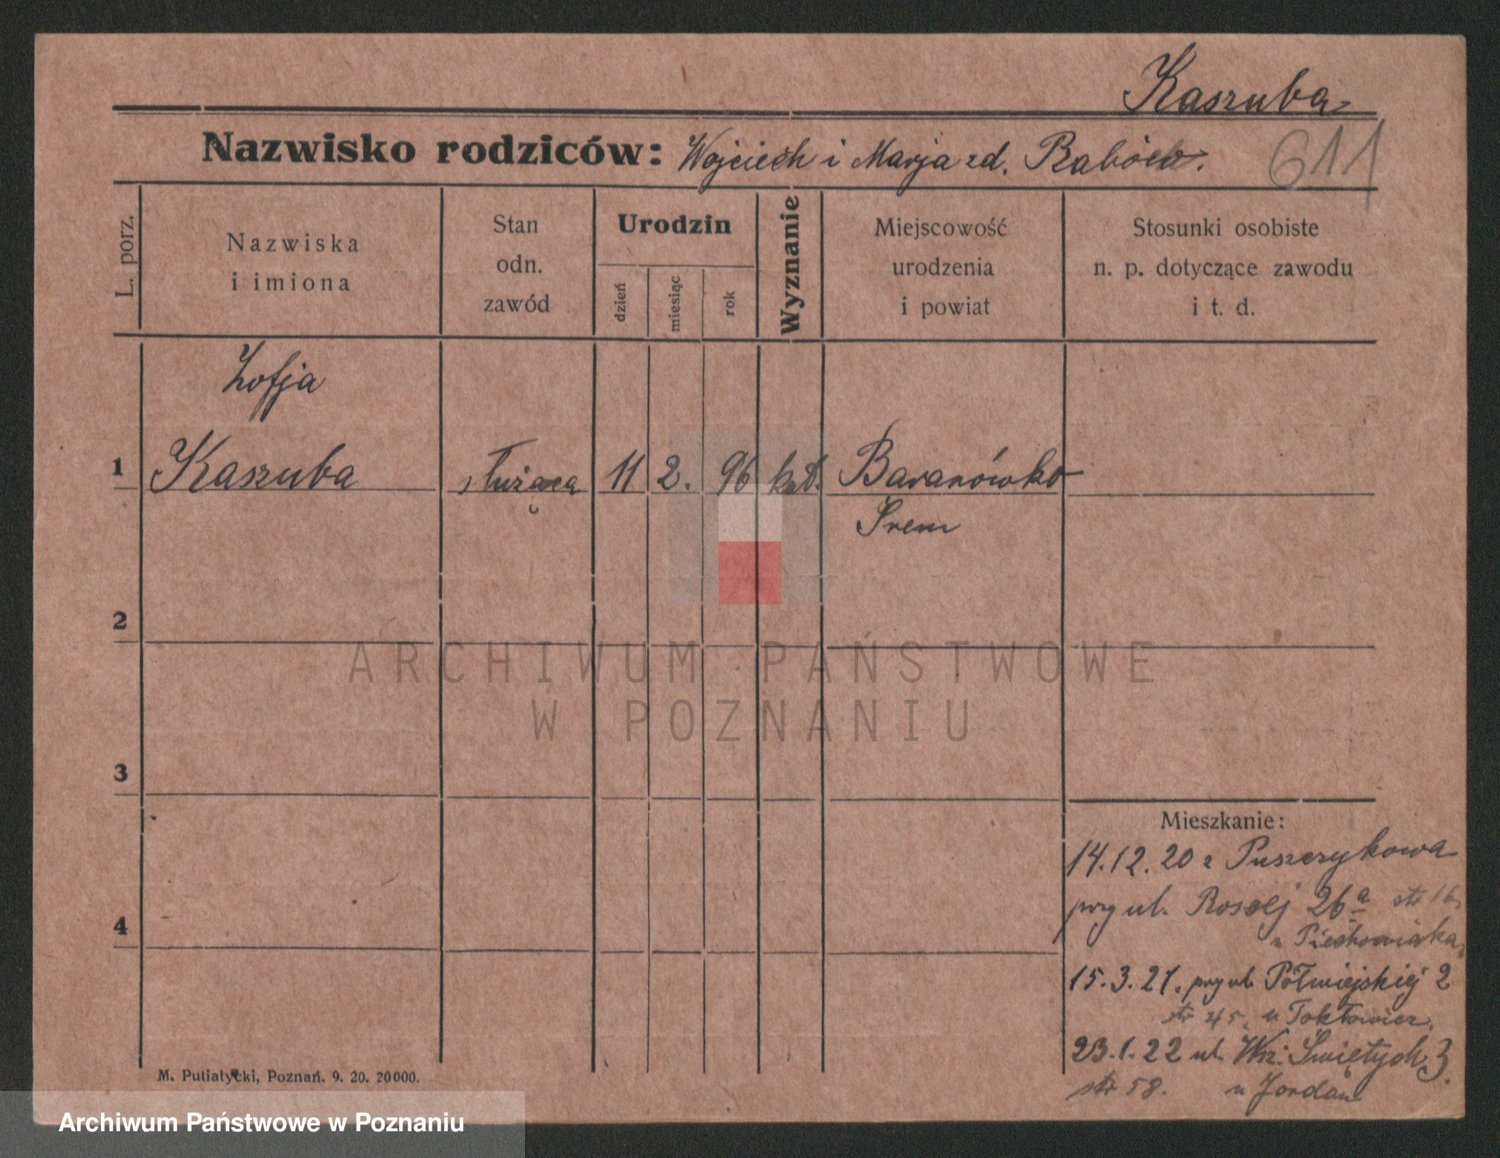 Kaszuba
Nazwisko rodziców: Wojciech i Marja zd. 611
L. porz.
Nazwiska i imiona
Stan odn. zawód
Urodzin
dzień
miesiąc
rok
Wyznanie
Miejscowość urodzenia i powiat
Stosunki osobiste n. p. dotyczące zawodu i t. d.
Zofja
1 Kaszuba służąca 11 2. 96 kat. Baranówko
Śrem
2
3
4
Mieszkanie:
14.12.20 z Puszczykowa
przy ul. 26a str 16.
u Piechowiaka
15.3.21. przy ul. Półwiejskiej 2
str 45. u
23.1.22 ul. Wsz. Świętych 3.
str 58. u Jordan
M. Putiatycki, Poznań. 9. 20. 20000.
ARCHIWUM PAŃSTWOWE
W POZNANIU
Archiwum Państwowe w Poznaniu